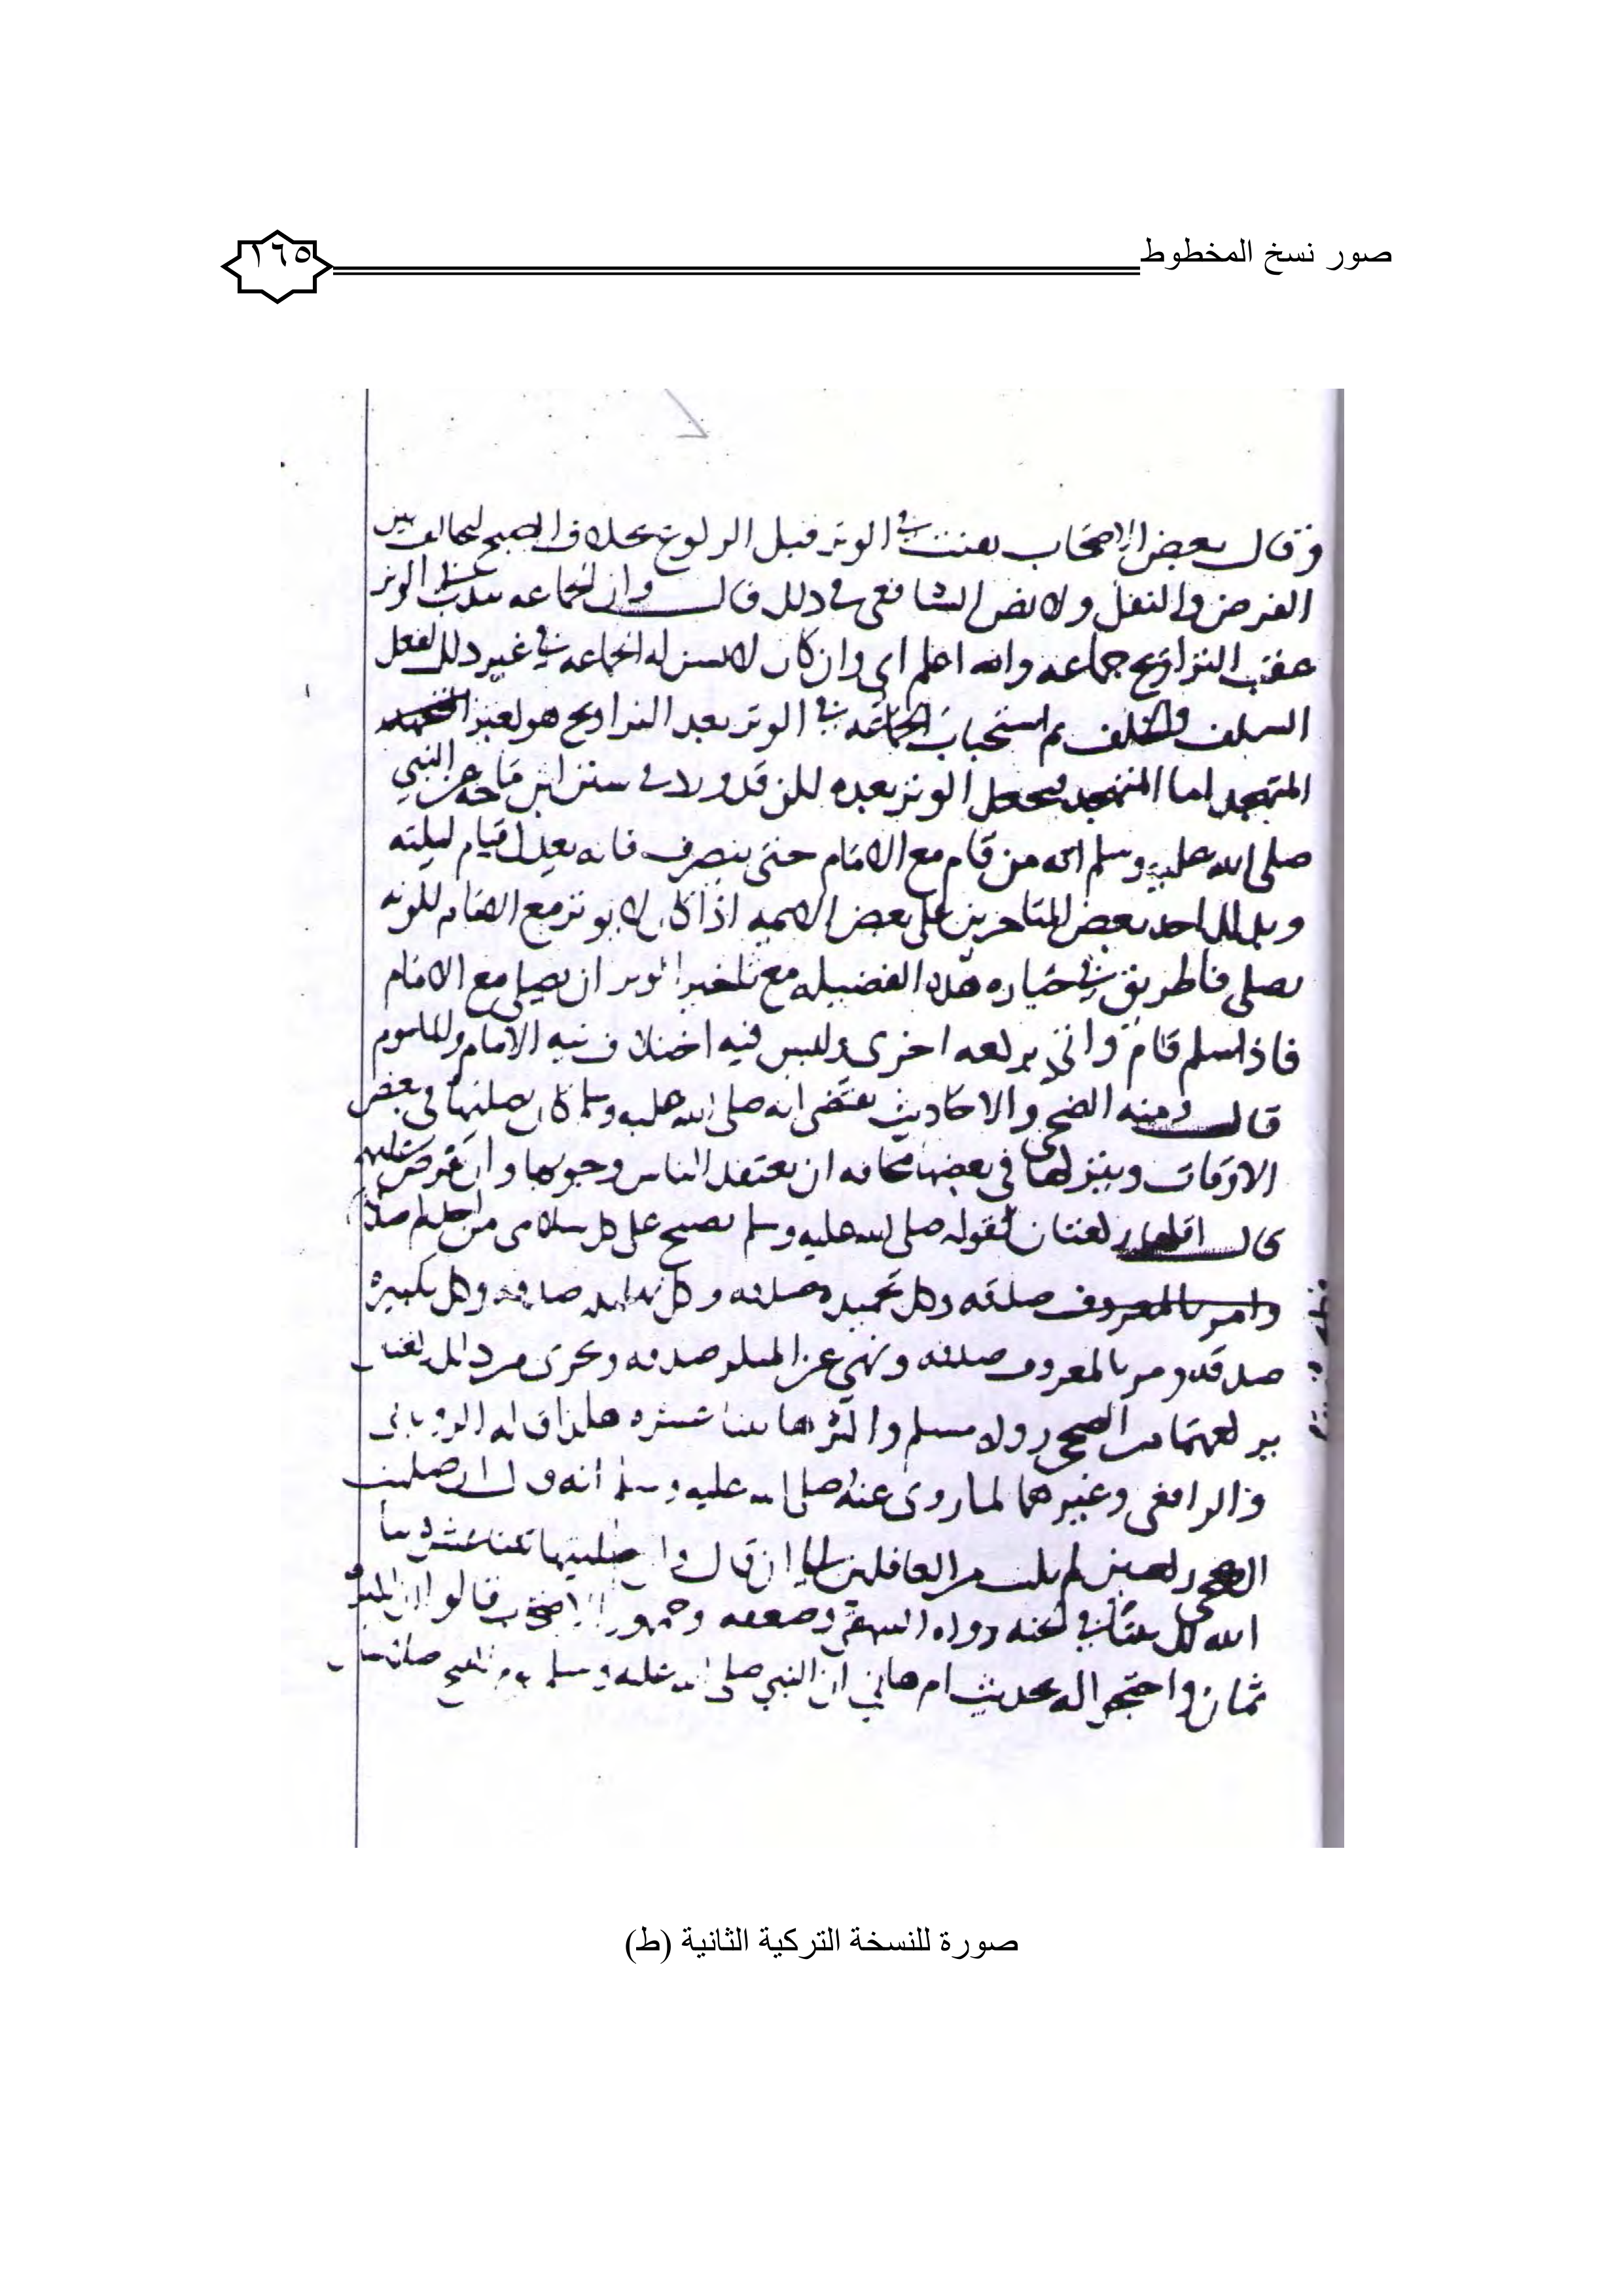 صور نسخ المخطوط
١٦٥
وقال بعض الاصحاب يقنت في الوتر قبل الركوع بخلاف الصبح ليخالف بين
الفرض والنفل ولا نص للشافعي في ذلك قال وان الجماعه تندب الوتر
عقب التراويح جماعه والله اعلم اي وان كان لا تسن له الجماعه في غير ذلك لفعل
السلف والخلف ثم استحباب الجماعه في الوتر بعد التراويح هو لغير
المتهجد اما المتهجد فيجعل الوتر بعده لكن قد ورد في سنن ابن ماجه عن النبي
صلى الله عليه وسلم انه من قام مع الامام حتى ينصرف فانه يعدل قيام ليلته
وبذلك احد بعض المتاخرين على بعض الايمه اذا كان لا يوتر مع الامام للونه
يصلي فاطريق في حياره هذه الفضيله مع تاخير الوتر ان يصلي مع الامام
فاذا سلم قام واتى بركعه اخرى وليس فيه اختلاف نيه الامام والماموم
قال ومنه الضحى والاحاديث تقتضي انه صلى الله عليه وسلم كان يصليها في بعض
الاوقات ويتركها في بعضها مخافه ان يعتقد الناس وجوبها وان تفرض عليهم
قال اقلها ركعتان لقوله صلى الله عليه وسلم يصبح على كل سلامى من احدكم صدقه
وامر بالمعروف صدقه وكل تحميده صدقه وكل تهليله صدقه وكل تكبيره
صدقه ومر بالمعروف صدقه ونهي عن المنكر صدقه ويجزى من ذلك ركعتان
يركعهما من الضحى رواه مسلم واكثرها ثنتا عشره هكذا قاله الروياني
والرافعي وغيرهما لما روي عنه صلى الله عليه وسلم انه قال ان صليت
الضحى ركعتين لم تكتب من الغافلين الى ان قال وان صليتها ثنتا عشره بنا
الله لك بيتا في الجنه رواه البيهقي وضعفه وجمهور الاصحاب قالوا ان اكثره
ثمان واحتجوا له بحديث ام هاني ان النبي صلى الله عليه وسلم يوم الفتح صلى ثمان
صورة للنسخة التركية الثانية (ط)